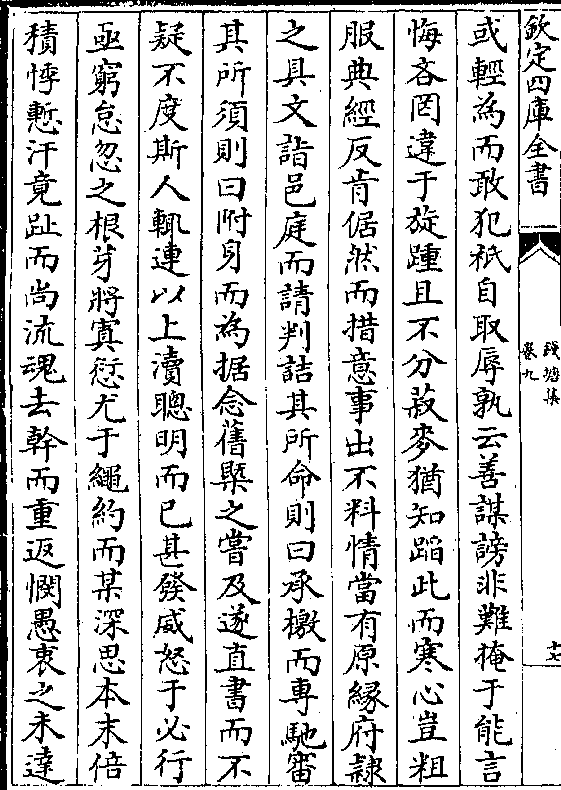 欽定四庫全書
錢塘集
卷九
十七
或輕為而敢犯秖自取辱孰云善謀謗非難掩于能言
悔吝罔違于旋踵且不分菽麥猶知蹈此而寒心豈粗
服典經反肯倨然而措意事出不料情當有原縁府隷
之具文詣邑庭而請判詰其所命則曰承檄而專馳審
其所須則曰附身而為据念舊槩之嘗及遂直書而不
疑不度斯人輒連以上瀆聰明而已甚發威怒于必行
亟窮怠忽之根芽將寘愆尤于繩約而某深思本末倍
積悸慙汗竟趾而尚流魂去幹而重返憫愚衷之未達